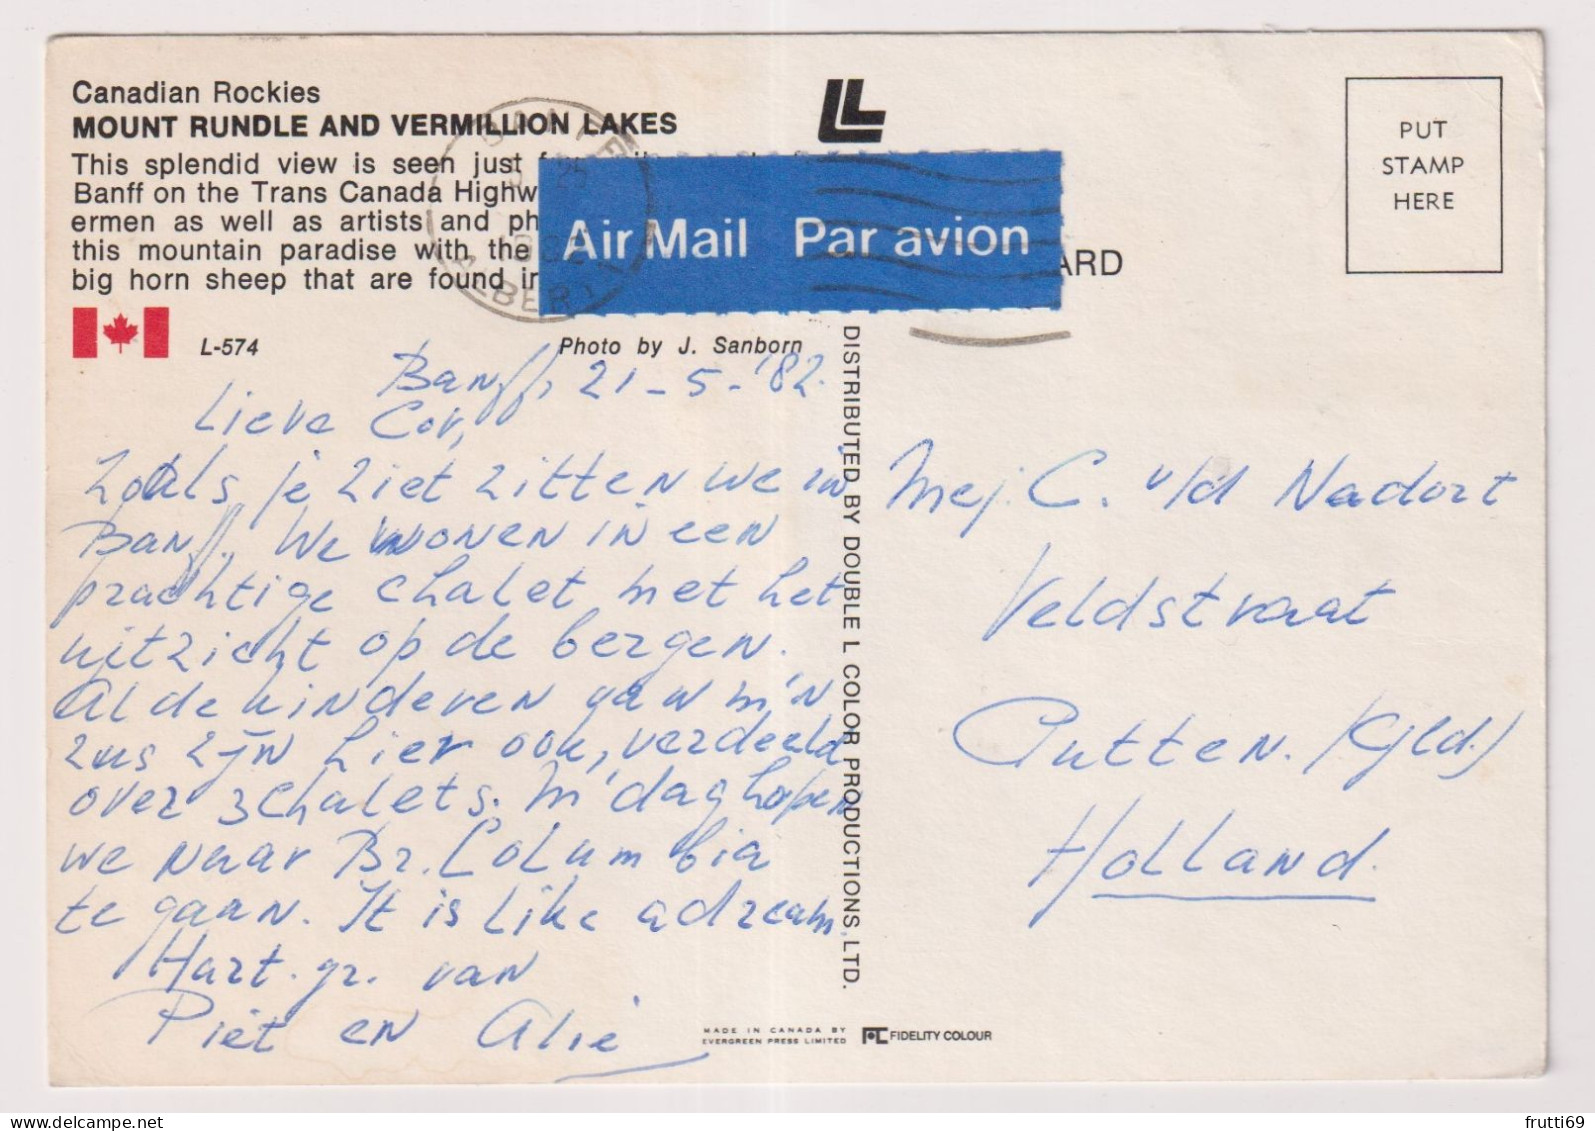 Canadian Rockies
MOUNT RUNDLE AND VERMILLION LAKES
This splendid view is seen just
Banff on the Trans Canada Highw
ermen as well as artists and ph
this mountain paradise with the
big horn sheep that are found in
L-574
Photo by J. Sanborn
BANFF
25
1982
ALBERTA
Air Mail Par avion
ARD
PUT
STAMP
HERE
Banff, 21-5-'82.
Lieve Cor,
Zoals je ziet zitten we in
Banff. We wonen in een
prachtige chalet met het
uitzicht op de bergen.
Al de kinderen van m'n
zus zijn hier ook, verdeeld
over 3 chalets. M'dag hopen
we naar Br. Columbia
te gaan. It is like a dream.
Hart. gr. van
Piet en Alie
DISTRIBUTED BY DOUBLE L COLOR PRODUCTIONS LTD.
Mej. C. v/d Nadort
Veldstraat
Putten. (Gld.)
Holland.
MADE IN CANADA BY
EVERGREEN PRESS LIMITED
FIDELITY COLOUR
frutti69